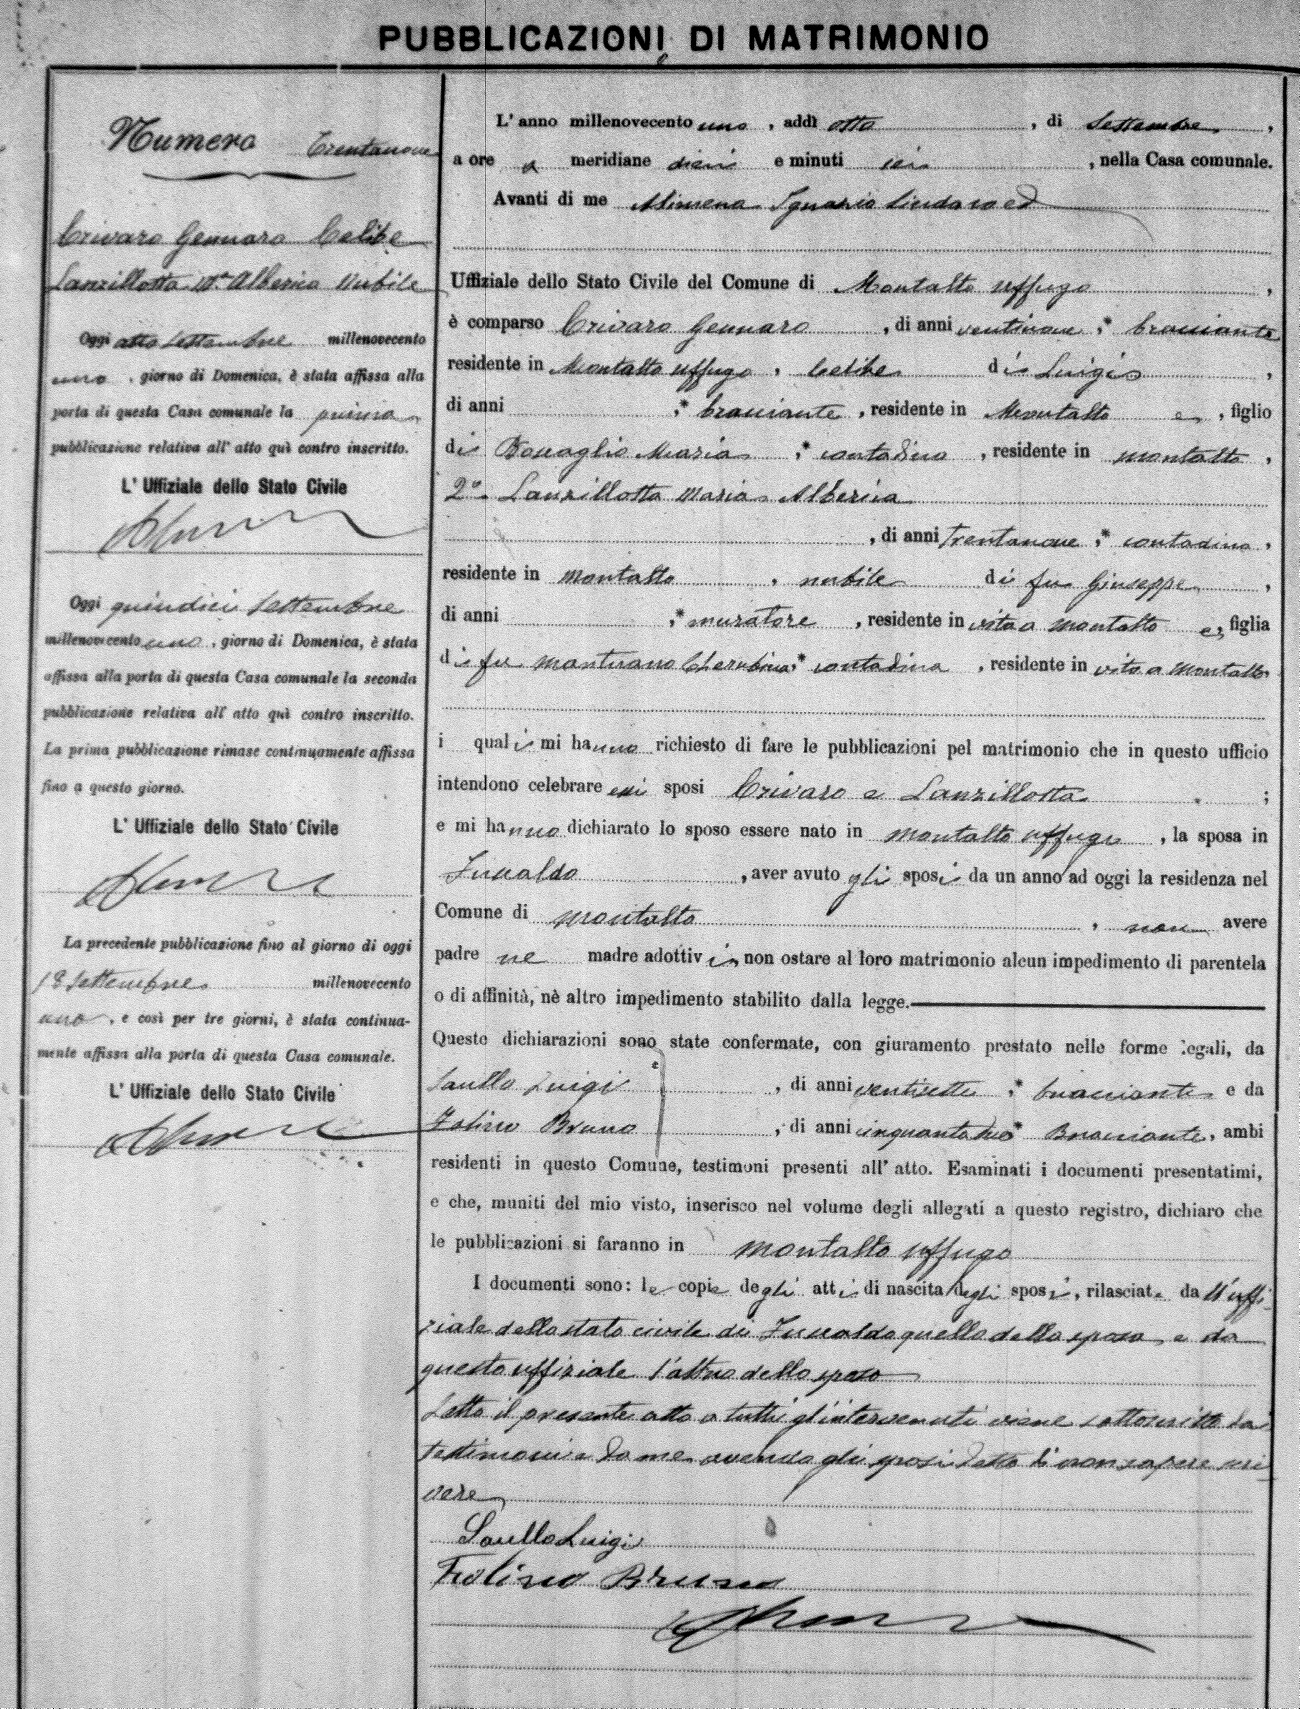 PUBBLICAZIONI DI MATRIMONIO
Numero Trentanove
Crivaro Gennaro Celibe
Lanzillotta Ma Alberica Nubile
Oggi otto Settembre millenovecento
uno, giorno di Domenica, è stata affissa alla
porta di questa Casa comunale la prima
pubblicazione relativa all' atto quì contro inscritto.
L' Uffiziale dello Stato Civile
Oggi quindici Settembre
millenovecento uno, giorno di Domenica, è stata
affissa alla porta di questa Casa comunale la seconda
pubblicazione relativa all' atto quì contro inscritto.
La prima pubblicazione rimase continuamente affissa
fino a questo giorno.
L' Uffiziale dello Stato Civile
La precedente pubblicazione fino al giorno di oggi
18 Settembre millenovecento
uno, e così per tre giorni, è stata continua-
mente affissa alla porta di questa Casa comunale.
L' Uffiziale dello Stato Civile
L' anno millenovecento uno, addì otto, di Settembre,
a ore a meridiane dieci e minuti sei, nella Casa comunale.
Avanti di me Alimena Ignazio Sindaco ed
Uffiziale dello Stato Civile del Comune di Montalto Uffugo,
è comparso Crivaro Gennaro, di anni ventinove, * bracciante
residente in Montalto Uffugo, Celibe di Luigi,
di anni , * bracciante, residente in Montalto e, figlio
di Maria, * contadina, residente in Montalto,
2o Lanzillotta Maria Alberica
, di anni Trentanove, * contadina,
residente in Montalto, nubile di fu Giuseppe,
di anni , * muratore, residente in vita a Montalto e, figlia
di fu Mantuano Cherubina, * contadina, residente in vita a Montalto
i quali mi hanno richiesto di fare le pubblicazioni pel matrimonio che in questo ufficio
intendono celebrare essi sposi Crivaro e Lanzillotta ;
e mi hanno dichiarato lo sposo essere nato in Montalto Uffugo, la sposa in
Fuscaldo, aver avuto gli sposi da un anno ad oggi la residenza nel
Comune di Montalto, non avere
padre ne madre adottivi, non ostare al loro matrimonio alcun impedimento di parentela
o di affinità, nè altro impedimento stabilito dalla legge.
Queste dichiarazioni sono state confermate, con giuramento prestato nelle forme legali, da
Saullo Luigi, di anni ventisette, * bracciante e da
Folino Bruno, di anni cinquantadue * Bracciante, ambi
residenti in questo Comune, testimoni presenti all' atto. Esaminati i documenti presentatimi,
e che, muniti del mio visto, inserisco nel volume degli allegati a questo registro, dichiaro che
le pubblicazioni si faranno in Montalto Uffugo
I documenti sono: le copie degli atti di nascita degli sposi, rilasciate da ll'uffi-
ziale dello stato civile di Fuscaldo quello della sposa e da
questo uffiziale l'altro dello sposo
Letto il presente atto a tutti gl'intervenuti viene sottoscritto da
testimoni e da me avendo gli sposi detto di non sapere scri-
vere
Saullo Luigi
Folino Bruno